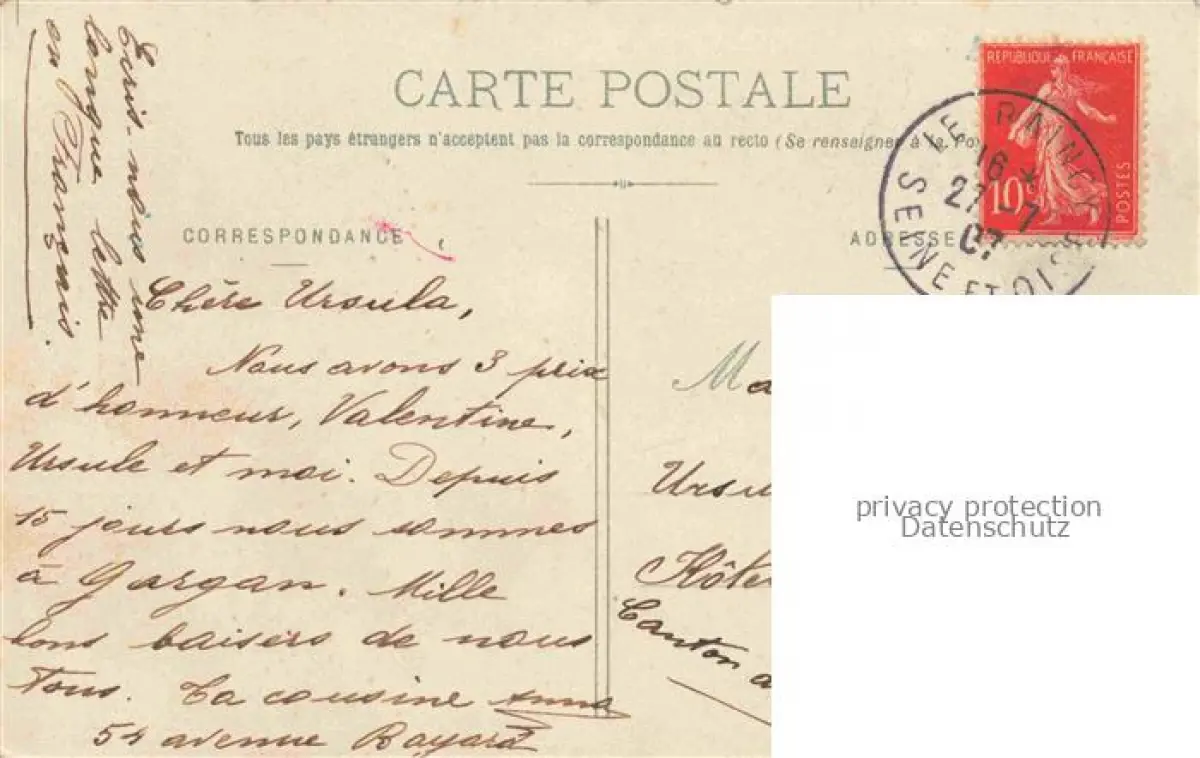 Ecris-nous une
longue lettre
en Français.
CARTE POSTALE
Tous les pays étrangers n'acceptent pas la correspondance au recto (Se renseigner à la Po
REPUBLIQUE FRANÇAISE
10c
POSTES
LE RAINCY
16 *
27 - 7
07
SEINE ET OISE
CORRESPONDANCE
ADRESSE
Chère Ursula,
Nous avons 3 prix
d'honneur, Valentine,
Ursule et moi. Depuis
15 jours nous sommes
à Gargan. Mille
bons baisers de nous
Tous. Ta cousine Anna
54 avenue Bayard
Ma
Ursu
Hôte
Canton
privacy protection
Datenschutz